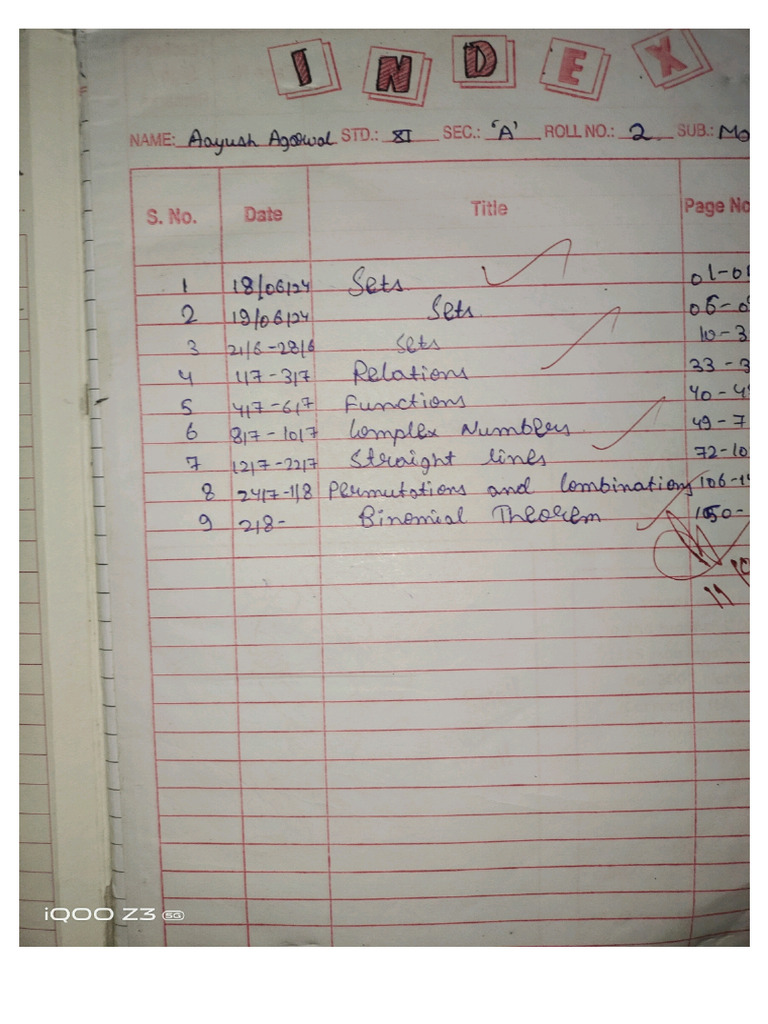 INDEX
NAME: Aayush Agarwal STD.: XI SEC.: 'A' ROLL NO.: 2 SUB.: Ma
S. No. Date Title Page No
1 18/06/24 Sets 01-0
2 19/06/24 Sets 06-0
3 21/6-28/6 Sets 10-3
4 1/7-3/7 Relations 33-3
5 4/7-6/7 Functions 40-4
6 8/7-10/7 Complex Numbers 49-7
7 12/7-22/7 Straight lines 72-10
8 24/7-1/8 Permutations and Combinations 106-14
9 2/8- Binomial Theorem 150-
iQOO Z3 5G